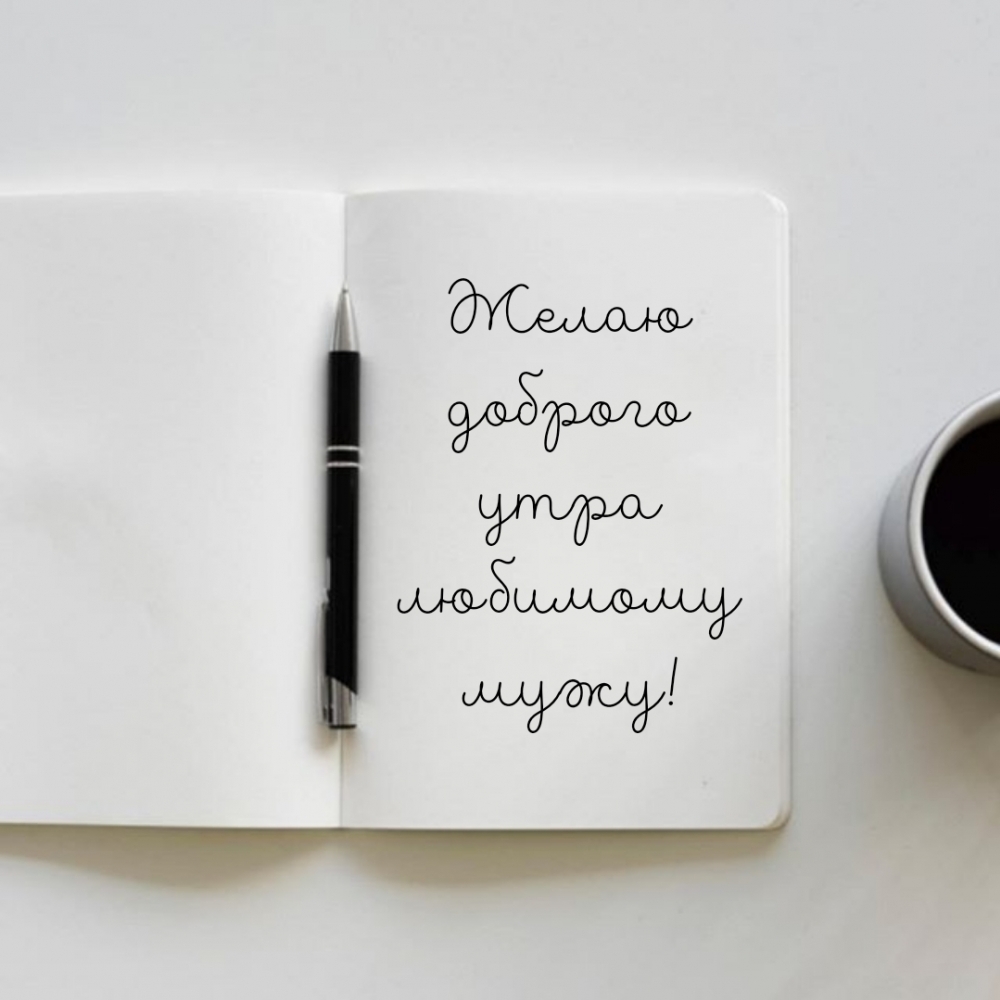 Желаю
доброго
утра
любимому
мужу!